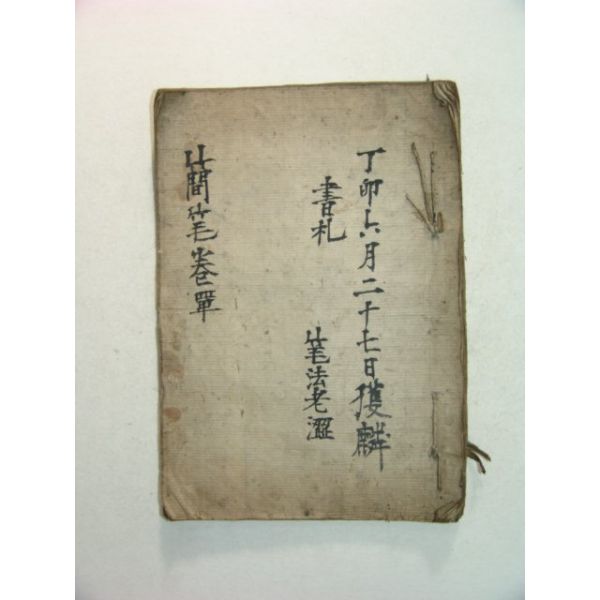 丁卯六月二十七日獲麟
書札
笔法老澀
簡笔卷單